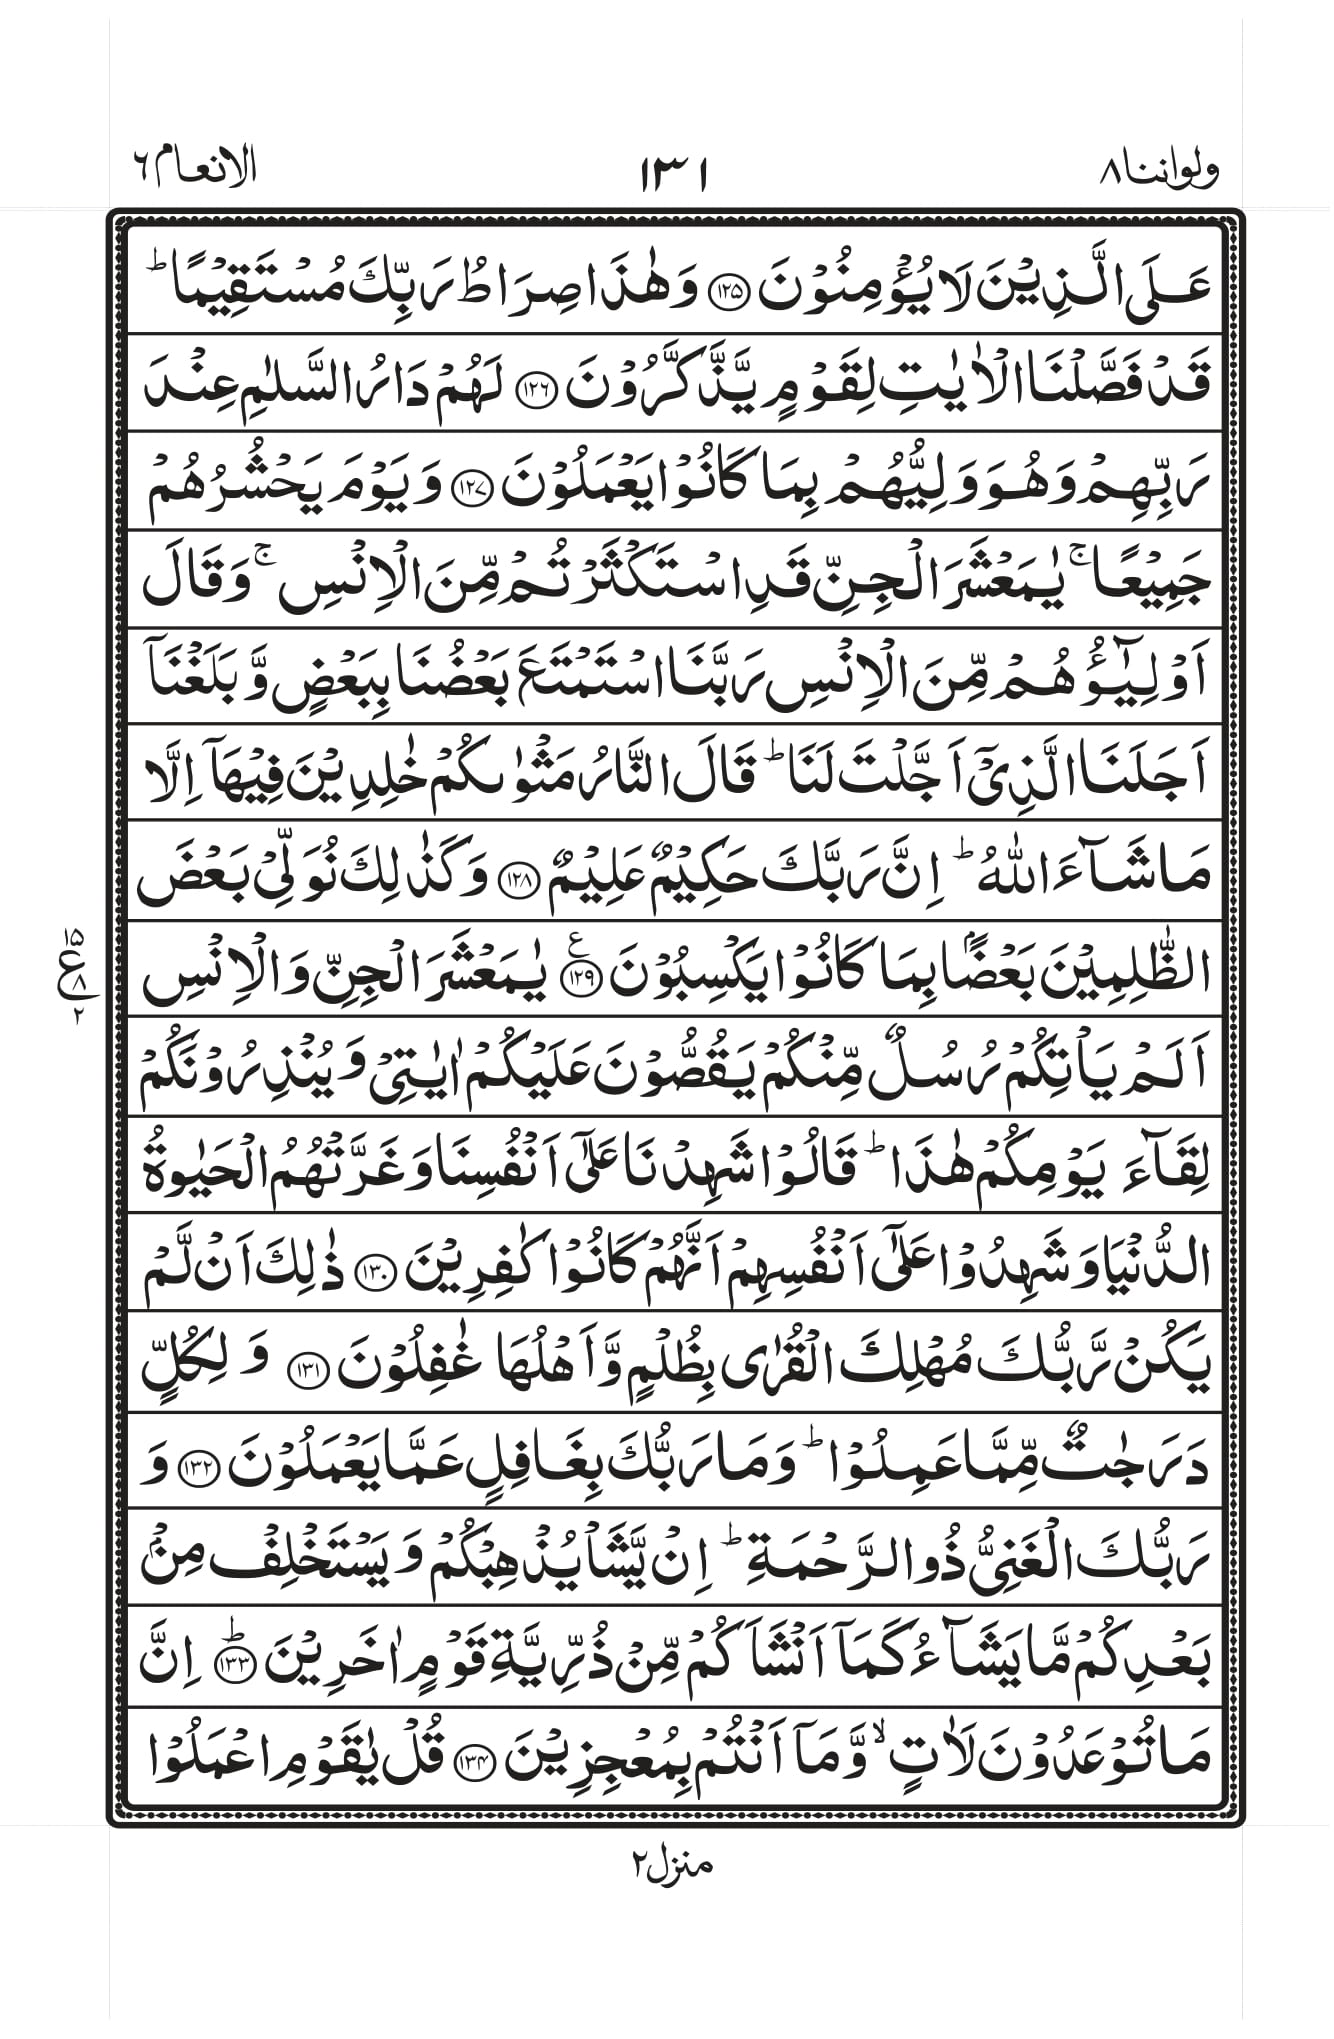 ولواننا ٨
١٣١
الانعام ٦
عَلَى الَّذِيْنَ لَا يُؤْمِنُوْنَ ﴿۱۲۵﴾ وَهٰذَا صِرَاطُ رَبِّكَ مُسْتَقِيْمًا ؕ
قَدْ فَصَّلْنَا الْاٰيٰتِ لِقَوْمٍ يَّذَّكَّرُوْنَ ﴿۱۲۶﴾ لَهُمْ دَارُ السَّلٰمِ عِنْدَ
رَبِّهِمْ وَهُوَ وَلِيُّهُمْ بِمَا كَانُوْا يَعْمَلُوْنَ ﴿۱۲۷﴾ وَيَوْمَ يَحْشُرُهُمْ
جَمِيْعًا ۚ يٰمَعْشَرَ الْجِنِّ قَدِ اسْتَكْثَرْتُمْ مِّنَ الْاِنْسِ ۚ وَقَالَ
اَوْلِيٰٓؤُهُمْ مِّنَ الْاِنْسِ رَبَّنَا اسْتَمْتَعَ بَعْضُنَا بِبَعْضٍ وَّبَلَغْنَآ
اَجَلَنَا الَّذِيْٓ اَجَّلْتَ لَنَا ؕ قَالَ النَّارُ مَثْوٰىكُمْ خٰلِدِيْنَ فِيْهَآ اِلَّا
مَا شَآءَ اللّٰهُ ؕ اِنَّ رَبَّكَ حَكِيْمٌ عَلِيْمٌ ﴿۱۲۸﴾ وَكَذٰلِكَ نُوَلِّيْ بَعْضَ
الظّٰلِمِيْنَ بَعْضًاۢ بِمَا كَانُوْا يَكْسِبُوْنَ ﴿۱۲۹﴾ ع يٰمَعْشَرَ الْجِنِّ وَالْاِنْسِ
۱۵
ع ۸
۲
اَلَمْ يَاْتِكُمْ رُسُلٌ مِّنْكُمْ يَقُصُّوْنَ عَلَيْكُمْ اٰيٰتِيْ وَيُنْذِرُوْنَكُمْ
لِقَآءَ يَوْمِكُمْ هٰذَا ؕ قَالُوْا شَهِدْنَا عَلٰٓى اَنْفُسِنَا وَغَرَّتْهُمُ الْحَيٰوةُ
الدُّنْيَا وَشَهِدُوْا عَلٰٓى اَنْفُسِهِمْ اَنَّهُمْ كَانُوْا كٰفِرِيْنَ ﴿۱۳۰﴾ ذٰلِكَ اَنْ لَّمْ
يَكُنْ رَّبُّكَ مُهْلِكَ الْقُرٰى بِظُلْمٍ وَّاَهْلُهَا غٰفِلُوْنَ ﴿۱۳۱﴾ وَلِكُلٍّ
دَرَجٰتٌ مِّمَّا عَمِلُوْا ؕ وَمَا رَبُّكَ بِغَافِلٍ عَمَّا يَعْمَلُوْنَ ﴿۱۳۲﴾ وَ
رَبُّكَ الْغَنِيُّ ذُو الرَّحْمَةِ ؕ اِنْ يَّشَاْ يُذْهِبْكُمْ وَيَسْتَخْلِفْ مِنْۢ
بَعْدِكُمْ مَّا يَشَآءُ كَمَآ اَنْشَاَكُمْ مِّنْ ذُرِّيَّةِ قَوْمٍ اٰخَرِيْنَ ﴿۱۳۳﴾ ؕ اِنَّ
مَا تُوْعَدُوْنَ لَاٰتٍ ۙ وَّمَآ اَنْتُمْ بِمُعْجِزِيْنَ ﴿۱۳۴﴾ قُلْ يٰقَوْمِ اعْمَلُوْا
منزل ۲